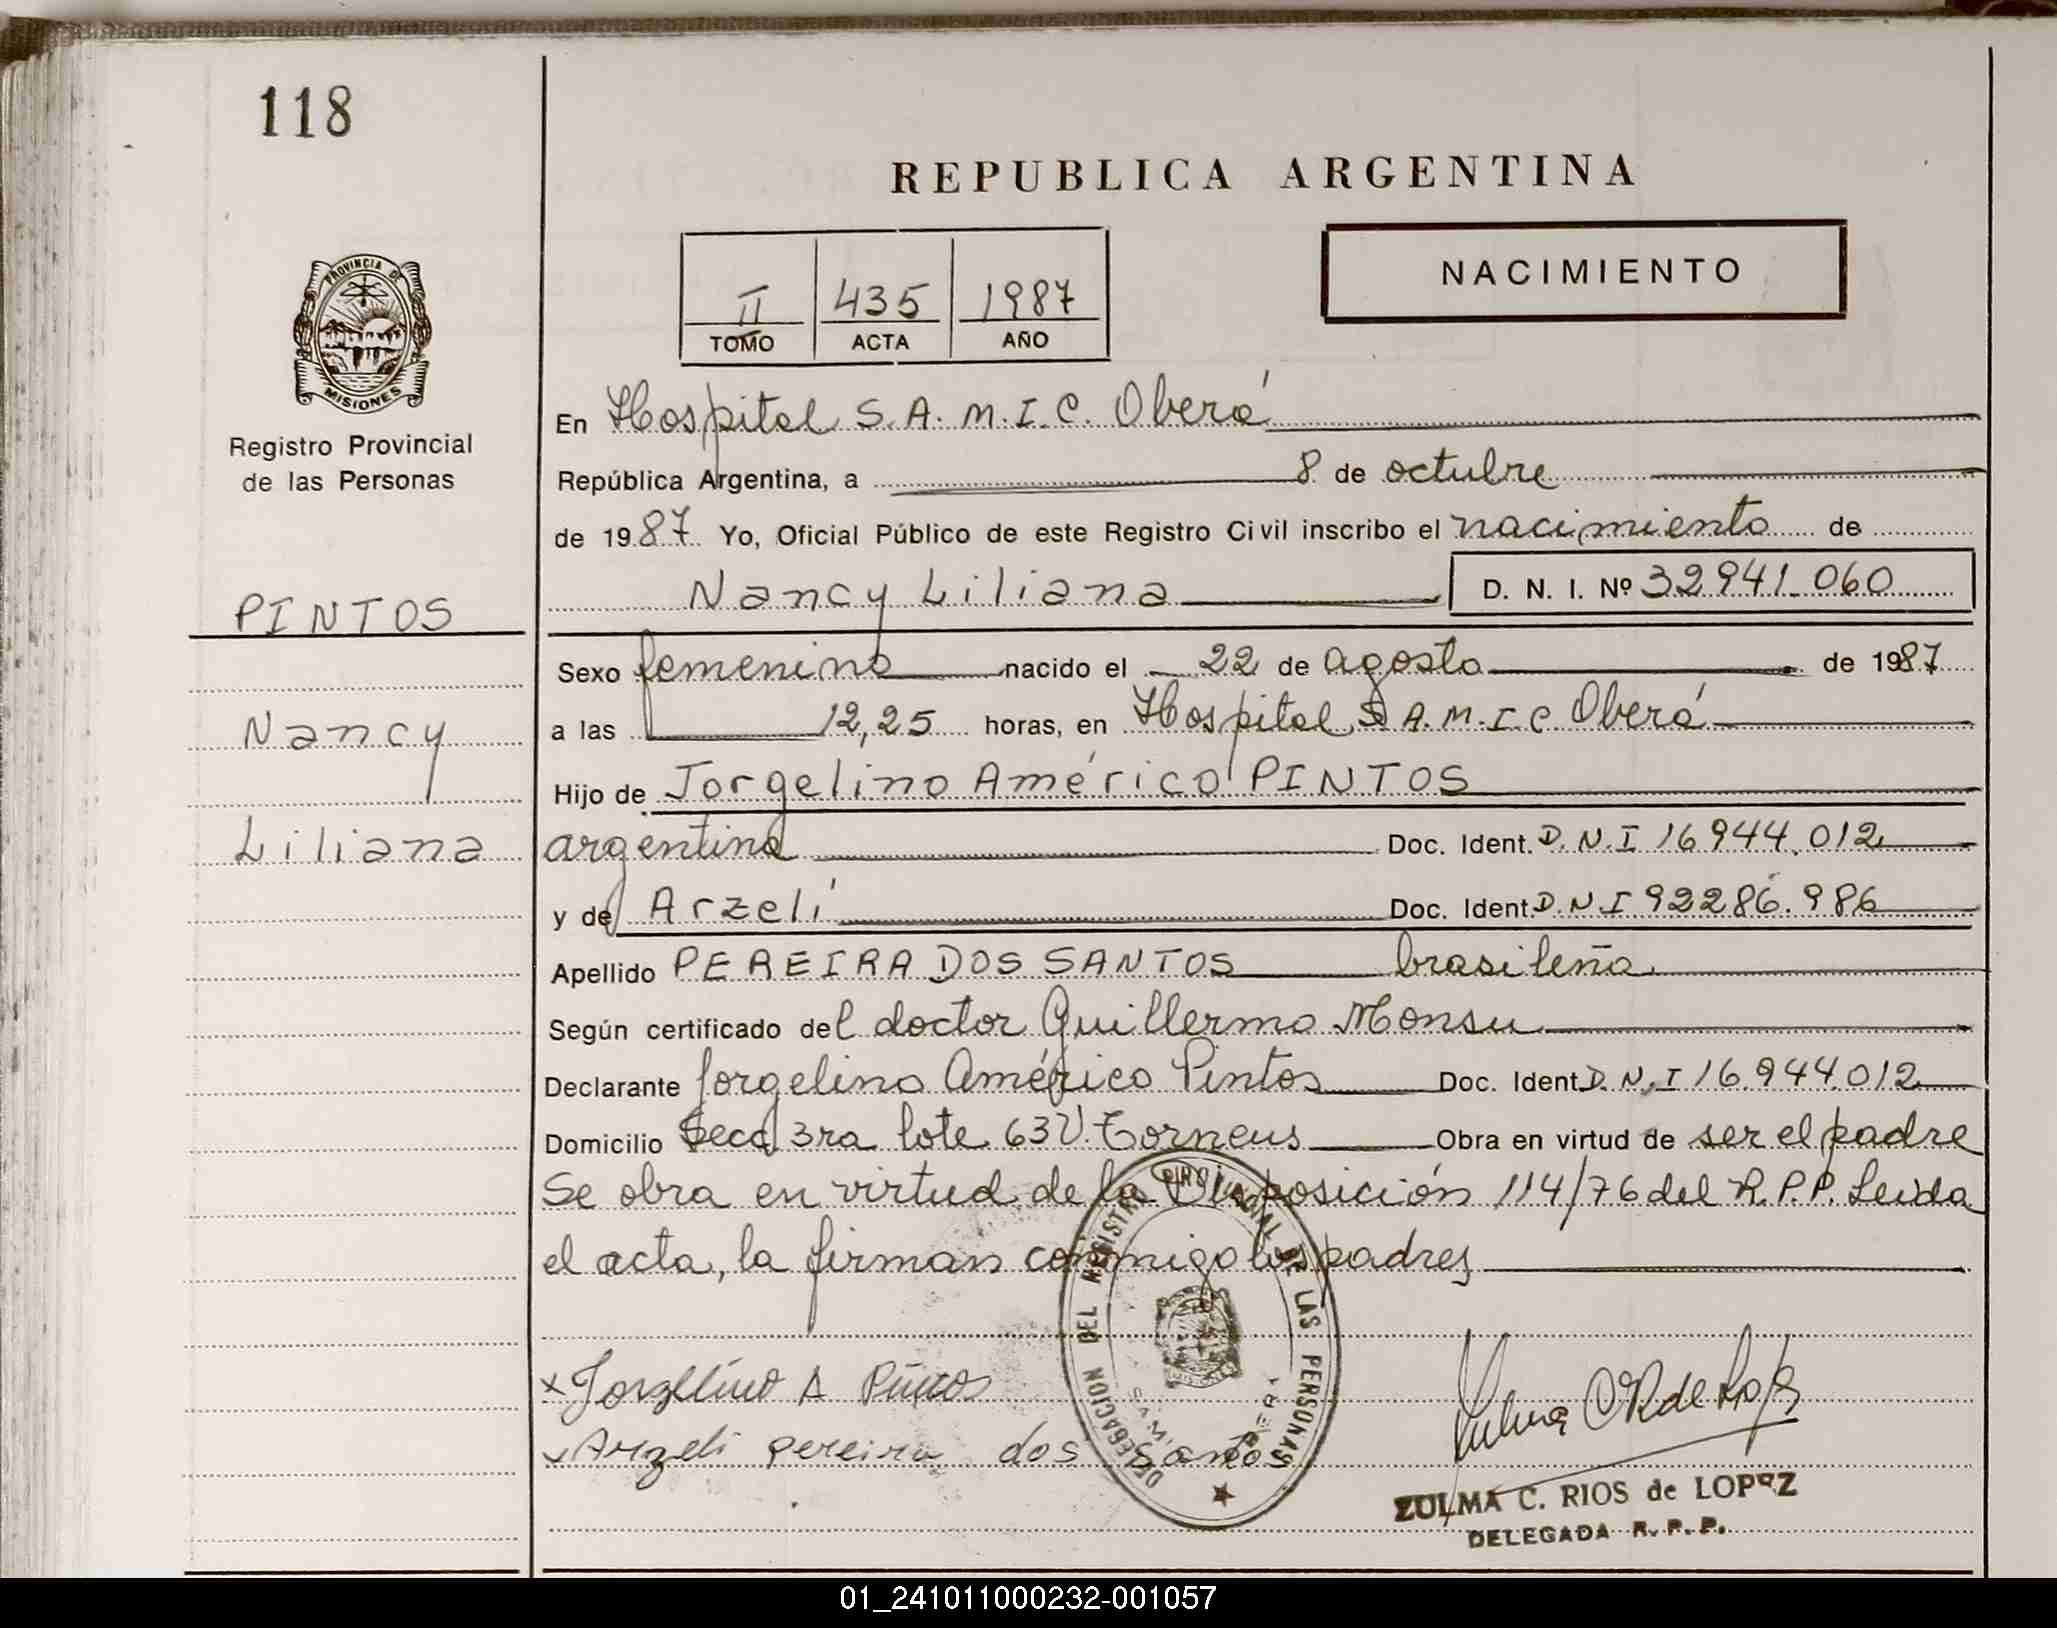 118
REPUBLICA ARGENTINA
NACIMIENTO
II 435 1987
TOMO ACTA AÑO
PROVINCIA DE
MISIONES
Registro Provincial
de las Personas
PINTOS
Nancy
Liliana
En Hospital S.A.M.I.C. Oberá
República Argentina, a 8 de octubre
de 1987 Yo, Oficial Público de este Registro Civil inscribo el nacimiento de
Nancy Liliana D. N. I. Nº 32941.060
Sexo femenino nacido el 22 de agosto de 1987
a las 12,25 horas, en Hospital S A.M.I.C Oberá
Hijo de Jorgelino Américo PINTOS
argentino Doc. Ident. D.N.I 16944.012
y de Arzelí Doc. Ident. D.N.I 92286.986
Apellido PEREIRA DOS SANTOS brasileña
Según certificado del doctor Guillermo Monsu
Declarante Jorgelino Américo Pintos Doc. Ident. D.N.I 16.944.012
Domicilio Secc 3ra lote 63 V. Torneus Obra en virtud de ser el padre
Se obra en virtud de la Disposición 114/76 del R.P.P. Leida
el acta, la firman conmigo los padres
DELEGACION DEL REGISTRO PROVINCIAL DE LAS PERSONAS
x Jorgelino A Pintos
x Arzeli pereira dos santos
Zulma C R de Lopez
ZULMA C. RIOS de LOPEZ
DELEGADA R. P. P.
01_241011000232-001057